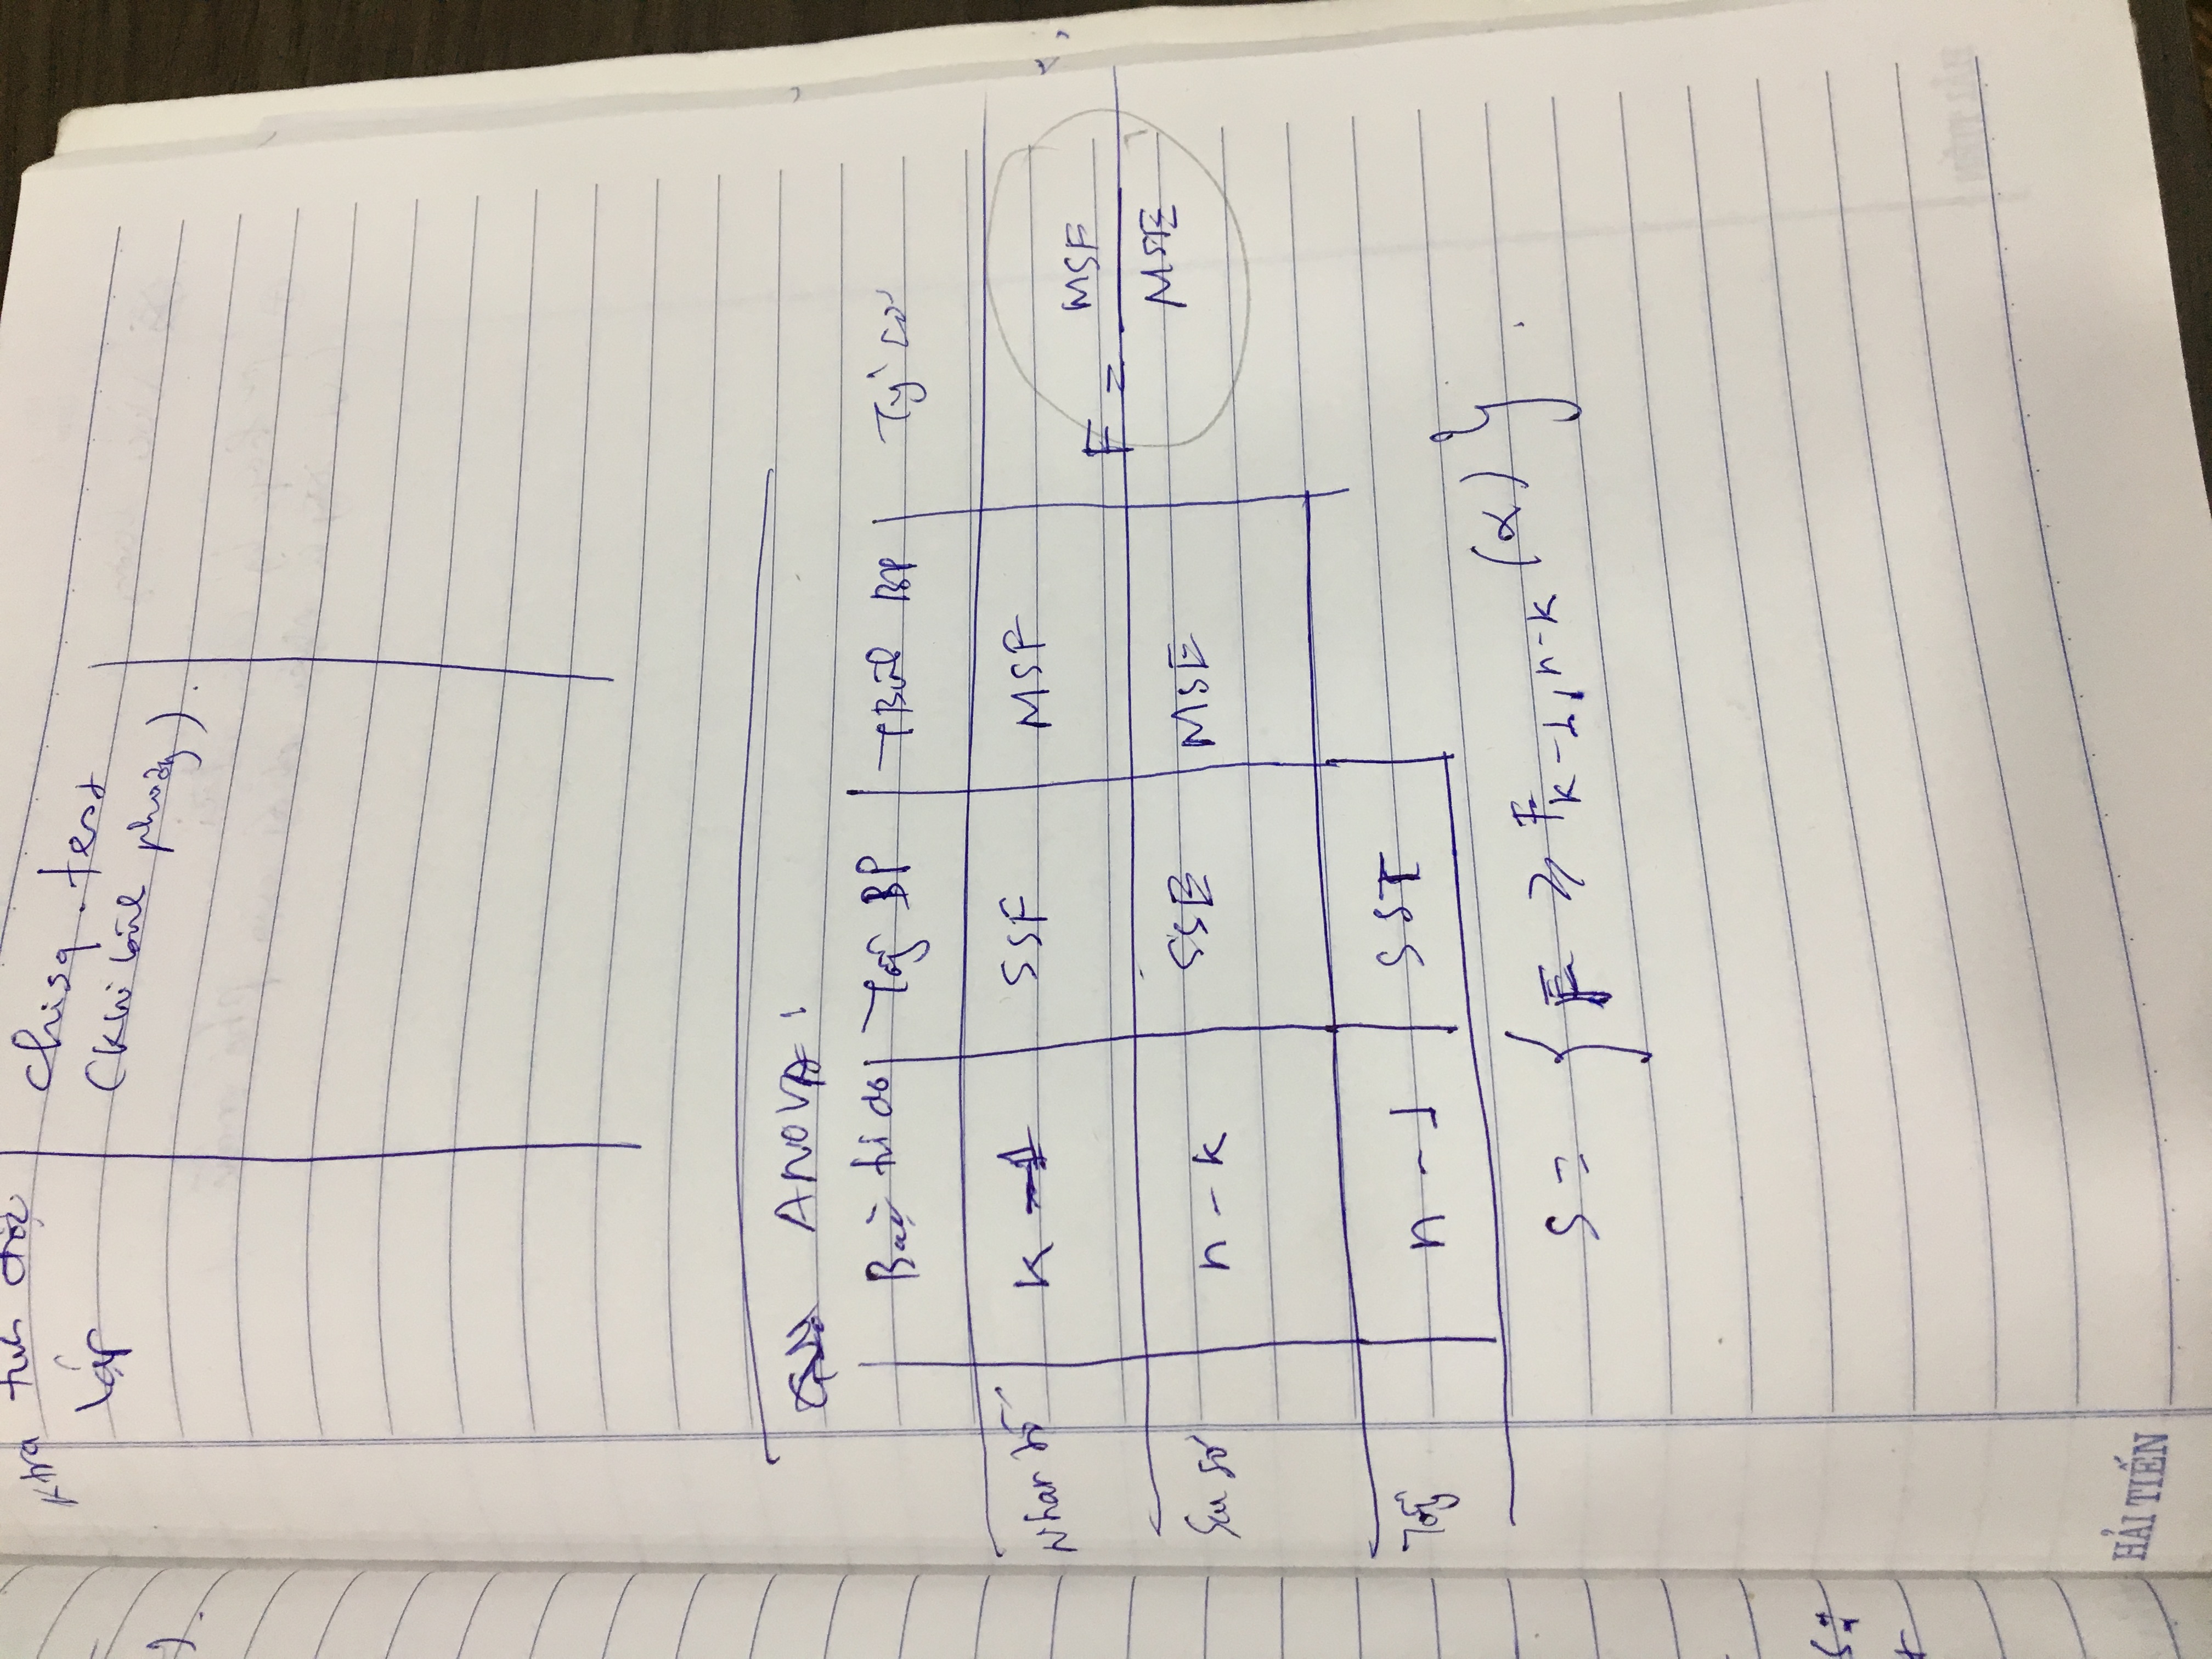 Ktra tính độc
lập
chisq.test
(Khi bình phương).
ANOVA:
Bậc tự do Tổng BP TBình BP Tỷ số
Nhân tố K - 1 SSF MSF
F = MSF / MSE
Sai số n - k SSE MSE
Tổng n - 1 SST
S = { F ⩾ F k-1, n-k (α) }.
HẢI TIẾN